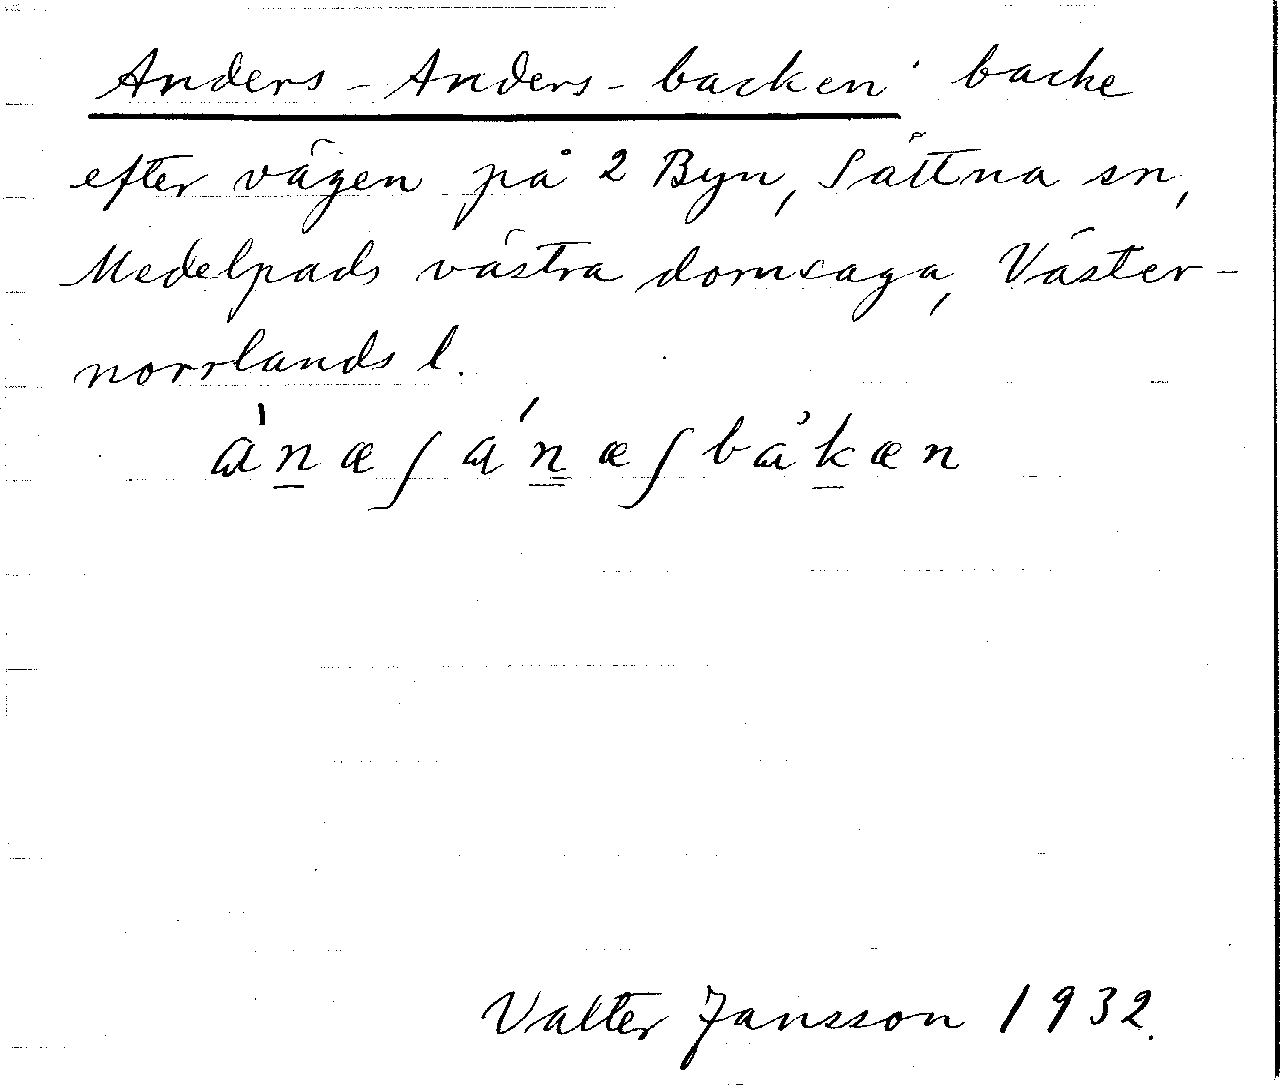 Anders-Anders-backen backe
efter vägen på 2 Byn, Sättna sn,
Medelpads västra domsaga, Väster-
norrlands l.
ánæʃánæʃbàkæn
Valter Jansson 1932.